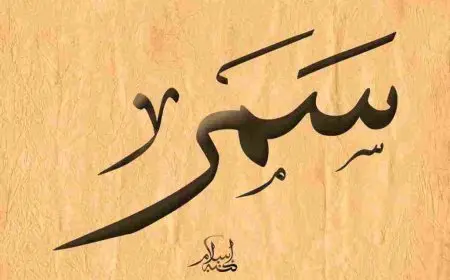 سَمَر